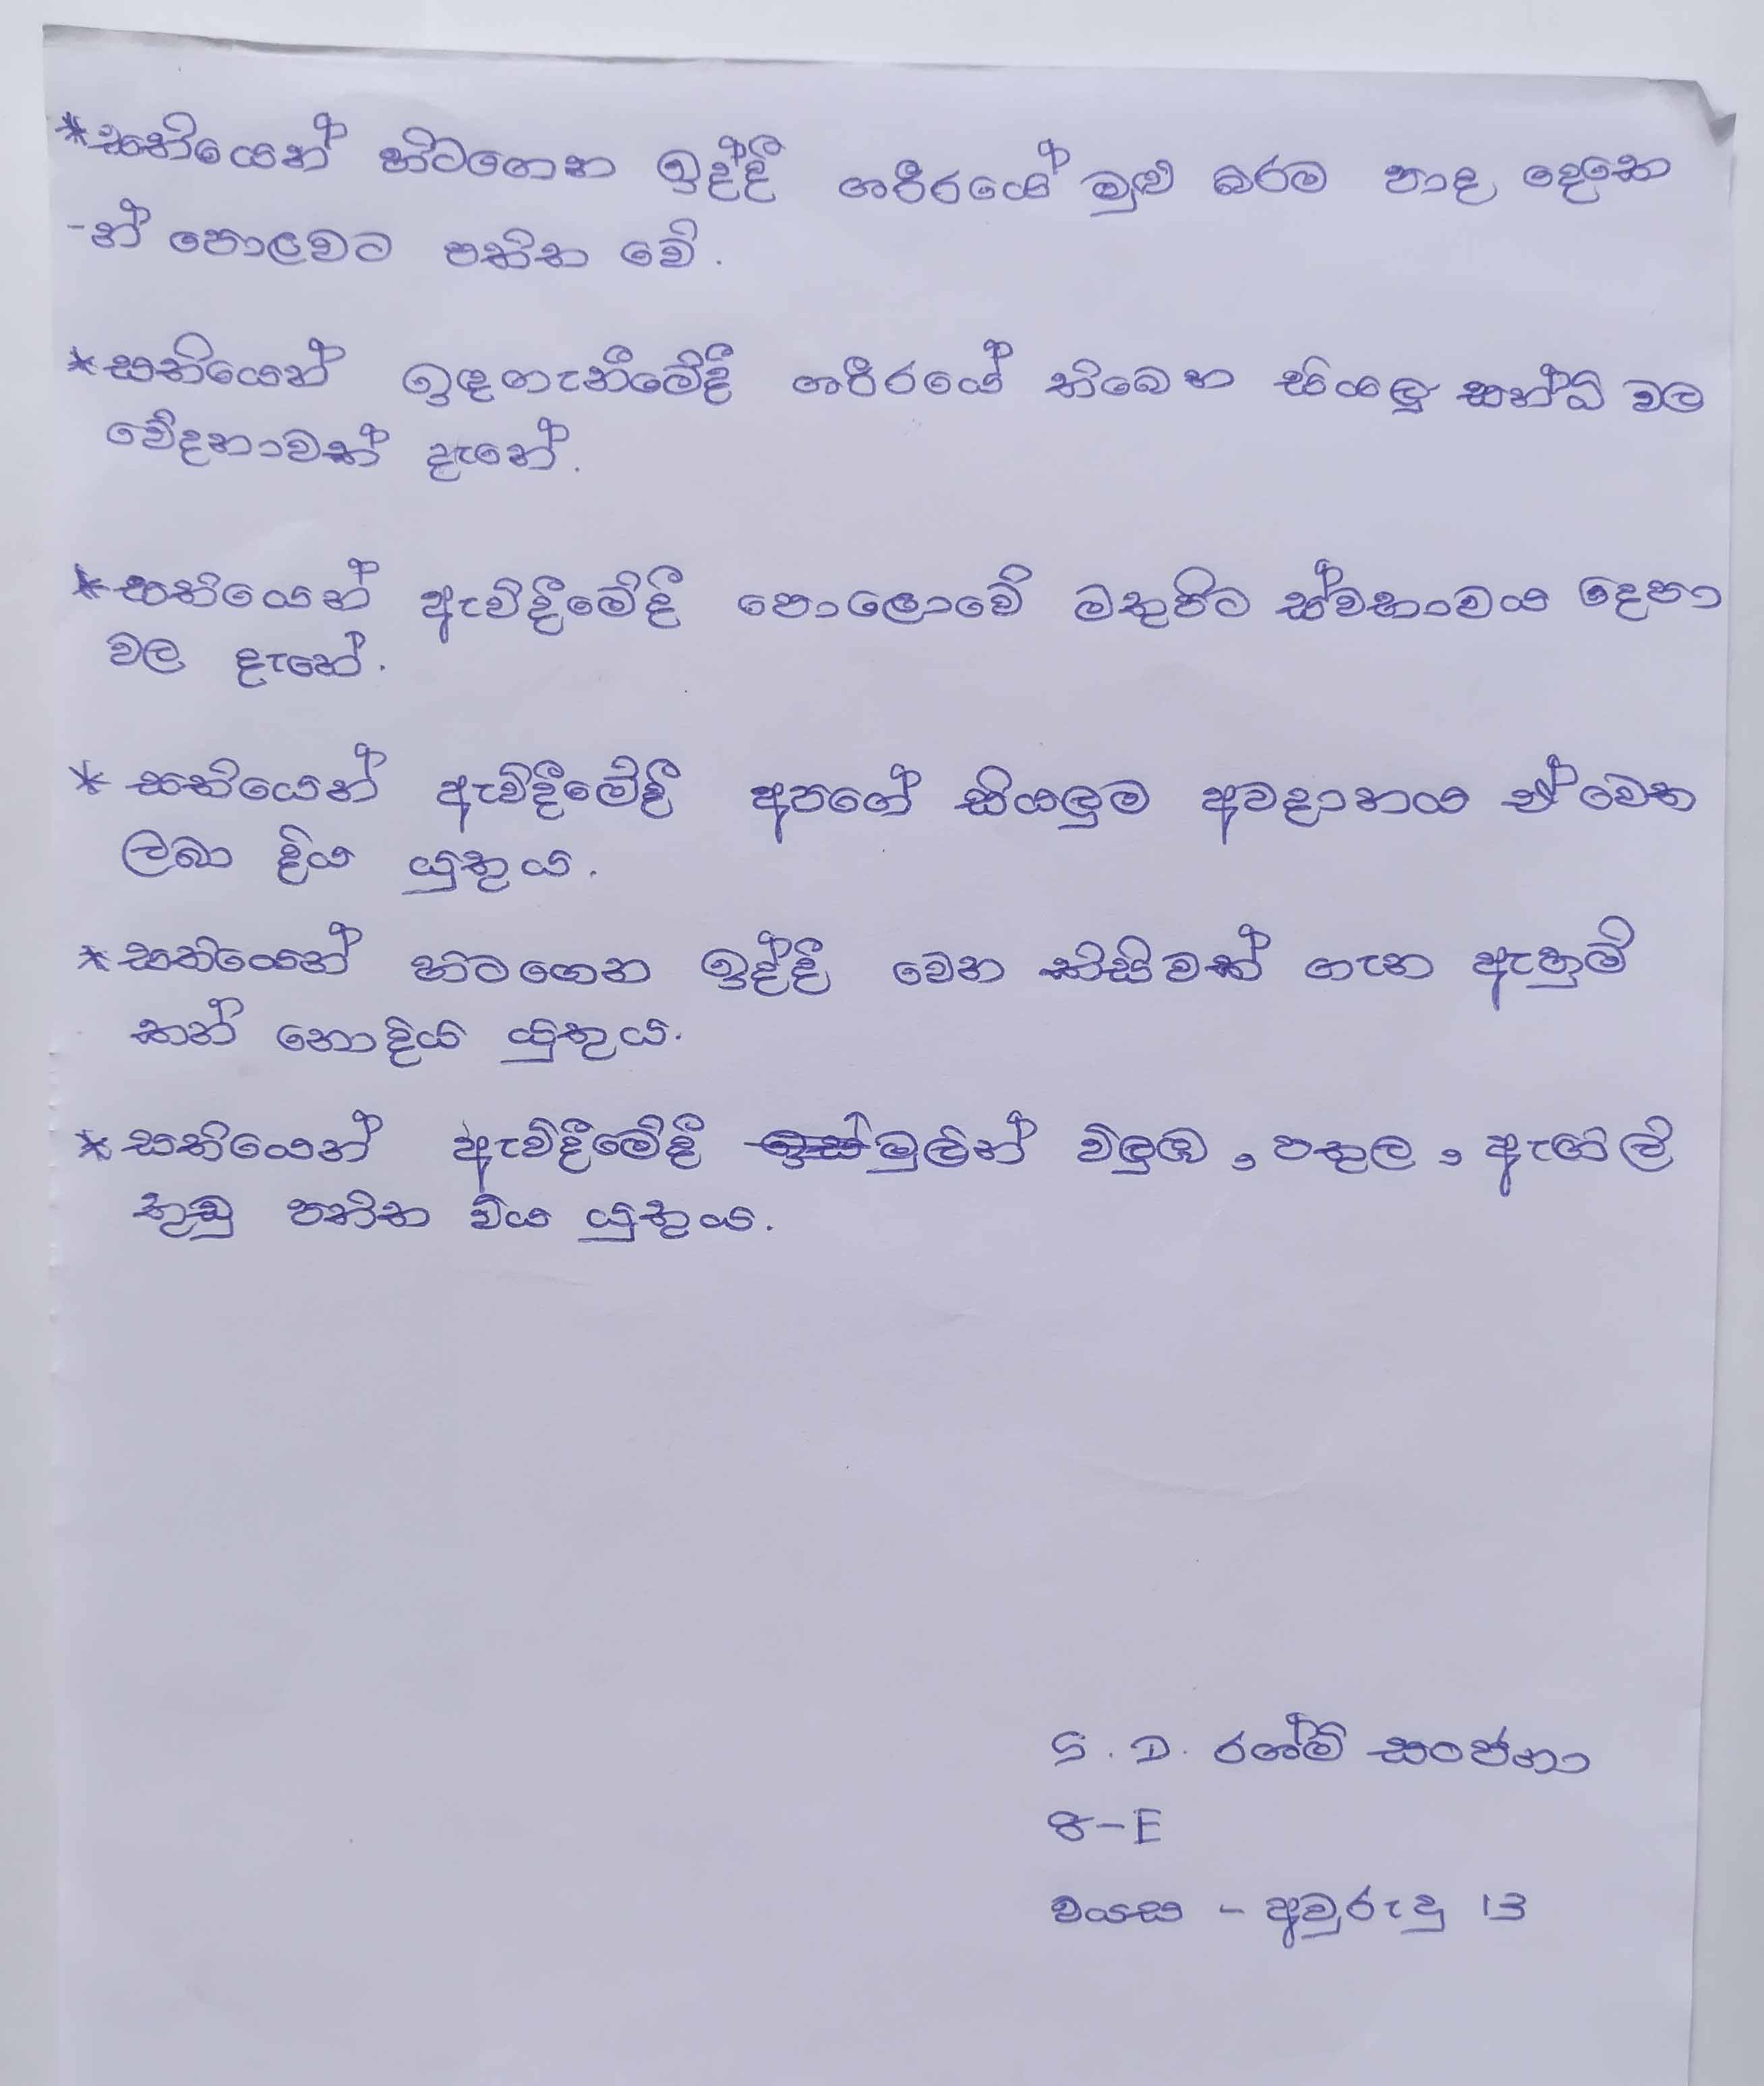 *සතියෙන් හිටගෙන ඉද්දී ශරීරයේ මුළු බරම පාද දෙකෙ
-න් පොළවට පතිත වේ.
*සතියෙන් ඉඳගැනීමේදී ශරීරයේ තිබෙන සියලු සන්ධි වල
වේදනාවක් දැනේ.
*සතියෙන් ඇවිදීමේදී පොලොවේ මතුපිට ස්වභාවය දෙපා
වල දැනේ.
* සතියෙන් ඇවිදීමේදී අපගේ සියලුම අවදානය ඒ වෙත
ලබා දිය යුතුය.
*සතියෙන් හිටගෙන ඉද්දී වෙන කිසිවක් ගැන ඇහුම්
කන් නොදිය යුතුය.
*සතියෙන් ඇවිදීමේදී මුලින් විලුඹ, පතුල, ඇඟිලි
තුඩු පතිත විය යුතුය.
S. D. රශ්මි සංජනා
8-E
වයස - අවුරුදු 13